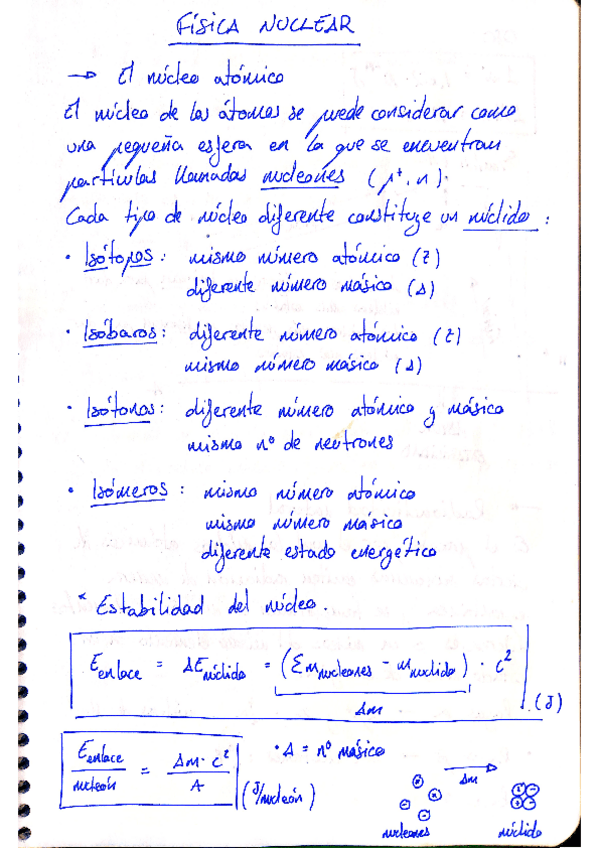 FÍSICA NUCLEAR
→ El núcleo atómico
El núcleo de los átomos se puede considerar como
una pequeña esfera en la que se encuentran
partículas llamadas nucleones (p⁺, n).
Cada tipo de núcleo diferente constituye un núclido:
• Isótopos: mismo número atómico (Z)
diferente número másico (A)
• Isóbaros: diferente número atómico (Z)
mismo número másico (A)
• Isótonos: diferente número atómico y másico
mismo nº de neutrones
• Isómeros: mismo número atómico
mismo número másico
diferente estado energético
* Estabilidad del núcleo.
E enlace = ΔE núclido = (Σ m nucleones - m nuclido) · c²
Δm
(J)
E enlace / nucleón = Δm · c² / A (J/nucleón)
• A = nº másico
Δm
nucleones
núclido